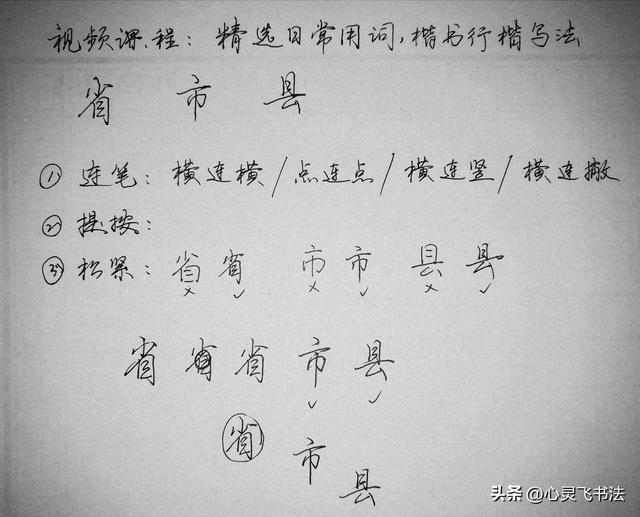 视频课程：精选日常用词，楷书行楷写法
省 市 县
① 连笔：横连横/点连点/横连竖/横连撇
② 提按：
③ 松紧：省 省 市 市 县 县
× ✓ × ✓ × ✓
省 省 省 市 县
✓ ✓
省 市
县
头条 @心灵飞书法